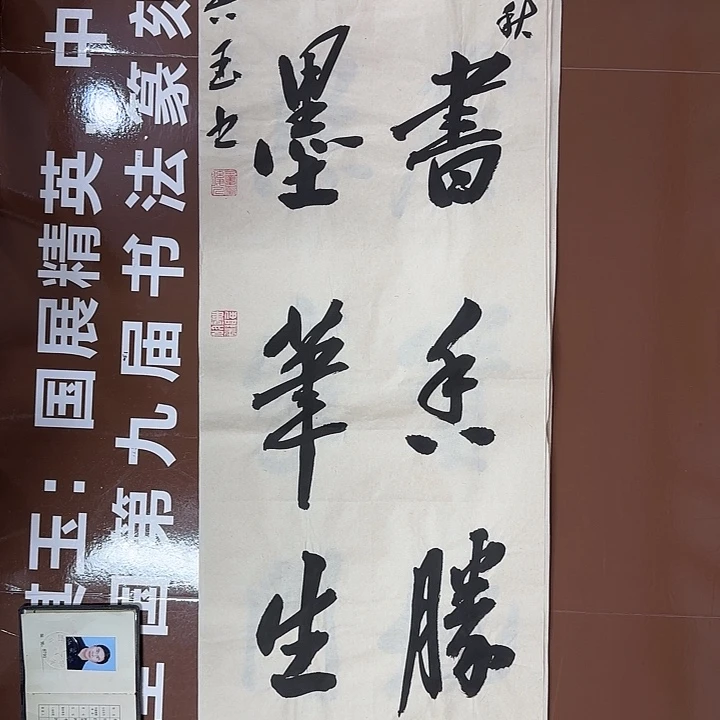 秋
書香勝
墨筆生
玉书
玉：国展精英 中
国第九届书法篆